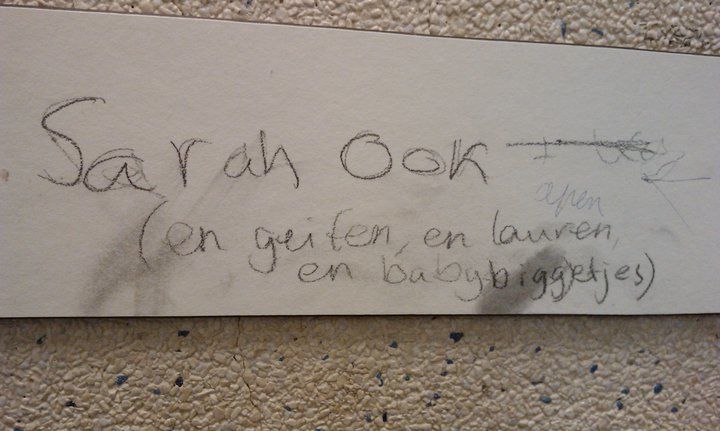 Sarah Ook
apen
(en geiten, en lauren,
en babybiggetjes)